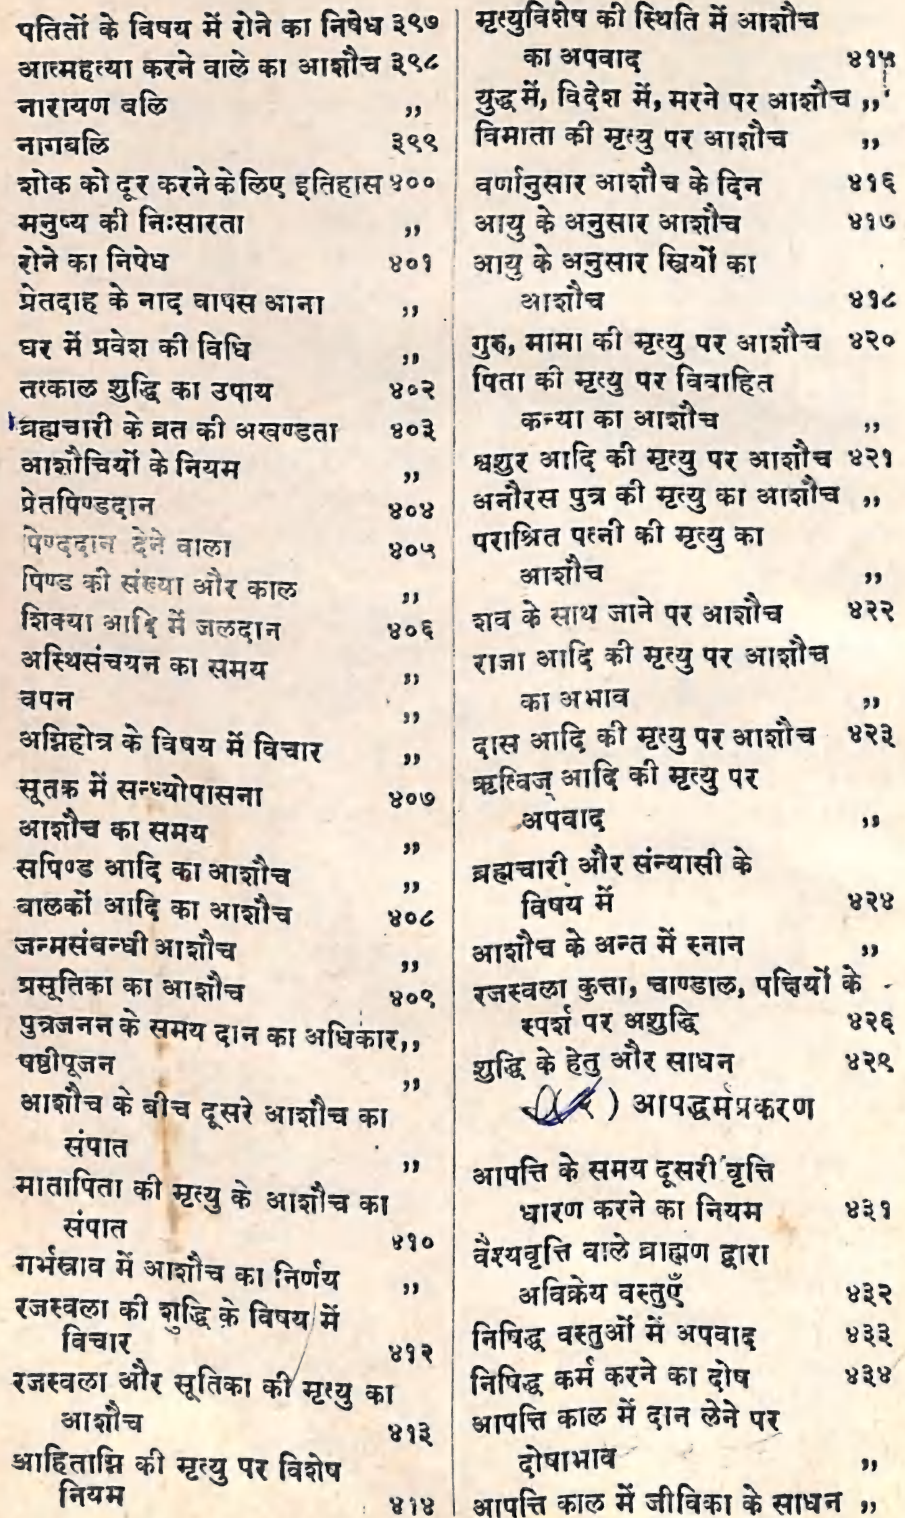 पतितों के विषय में रोने का निषेध ३९७
आत्महत्या करने वाले का आशौच ३९८
नारायण बलि ,,
नागबलि ३९९
शोक को दूर करने के लिए इतिहास ४००
मनुष्य की निःसारता ,,
रोने का निषेध ४०१
प्रेतदाह के नाद वापस आना ,,
घर में प्रवेश की विधि ,,
तत्काल शुद्धि का उपाय ४०२
ब्रह्मचारी के व्रत की अखण्डता ४०३
आशौचियों के नियम ,,
प्रेतपिण्डदान ४०४
पिण्ददान देने वाला ४०५
पिण्ड की संख्या और काल ,,
शिक्या आदि में जलदान ४०६
अस्थिसंचयन का समय ,,
वपन ,,
अग्निहोत्र के विषय में विचार ,,
सूतक में सन्ध्योपासना ४०७
आशौच का समय ,,
सपिण्ड आदि का आशौच ,,
बालकों आदि का आशौच ४०८
जन्मसंबन्धी आशौच ,,
प्रसूतिका का आशौच ४०९
पुत्रजनन के समय दान का अधिकार ,,
षष्ठीपूजन ,,
आशौच के बीच दूसरे आशौच का
संपात ,,
मातापिता की मृत्यु के आशौच का
संपात ४१०
गर्भस्राव में आशौच का निर्णय ,,
रजस्वला की शुद्धि के विषय में
विचार ४१२
रजस्वला और सूतिका की मृत्यु का
आशौच ४१३
आहिताग्नि की मृत्यु पर विशेष
नियम ४१४
मृत्युविशेष की स्थिति में आशौच
का अपवाद ४१५
युद्ध में, विदेश में, मरने पर आशौच ,,
विमाता की मृत्यु पर आशौच ,,
वर्णानुसार आशौच के दिन ४१६
आयु के अनुसार आशौच ४१७
आयु के अनुसार स्त्रियों का
आशौच ४१८
गुरु, मामा की मृत्यु पर आशौच ४२०
पिता की मृत्यु पर विवाहित
कन्या का आशौच ,,
श्वशुर आदि की मृत्यु पर आशौच ४२१
अनौरस पुत्र की मृत्यु का आशौच ,,
पराश्रित पत्नी की मृत्यु का
आशौच ,,
शव के साथ जाने पर आशौच ४२२
राजा आदि की मृत्यु पर आशौच
का अभाव ,,
दास आदि की मृत्यु पर आशौच ४२३
ऋत्विज् आदि की मृत्यु पर
अपवाद ,,
ब्रह्मचारी और संन्यासी के
विषय में ४२४
आशौच के अन्त में स्नान ,,
रजस्वला कुत्ता, चाण्डाल, पक्षियों के
स्पर्श पर अशुद्धि ४२६
शुद्धि के हेतु और साधन ४२९
(२) आपद्धर्मप्रकरण
आपत्ति के समय दूसरी वृत्ति
धारण करने का नियम ४३१
वैश्यवृत्ति वाले ब्राह्मण द्वारा
अविक्रेय वस्तुएँ ४३२
निषिद्ध वस्तुओं में अपवाद ४३३
निषिद्ध कर्म करने का दोष ४३४
आपत्ति काल में दान लेने पर
दोषाभाव ,,
आपत्ति काल में जीविका के साधन ,,